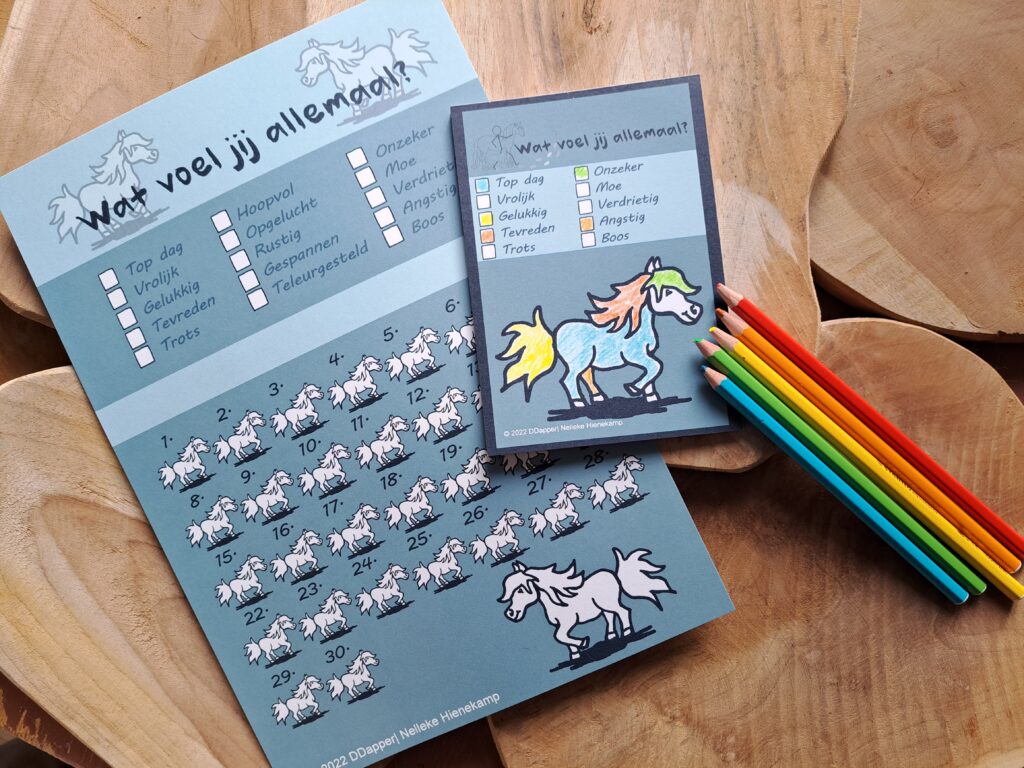 Wat voel jij allemaal?
Top dag
Vrolijk
Gelukkig
Tevreden
Trots
Hoopvol
Opgelucht
Rustig
Gespannen
Teleurgesteld
Onzeker
Moe
Verdriet
Angstig
Boos
1. 2. 3. 4. 5. 6.
8. 9. 10. 11. 12.
15. 16. 17. 18. 19.
22. 23. 24. 25. 26. 27. 28.
29. 30.
2022 DDapper| Nelleke Hienekamp
Wat voel jij allemaal?
Top dag
Vrolijk
Gelukkig
Tevreden
Trots
Onzeker
Moe
Verdrietig
Angstig
Boos
© 2022 DDapper| Nelleke Hienekamp